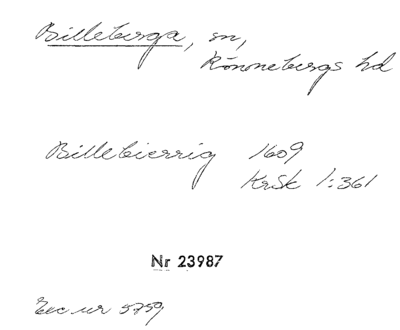 Billeberga, sn,
Rönnebergs hd
Billebierrig 1609
KrSk 1:361
Nr 23987
Exc ur 5759